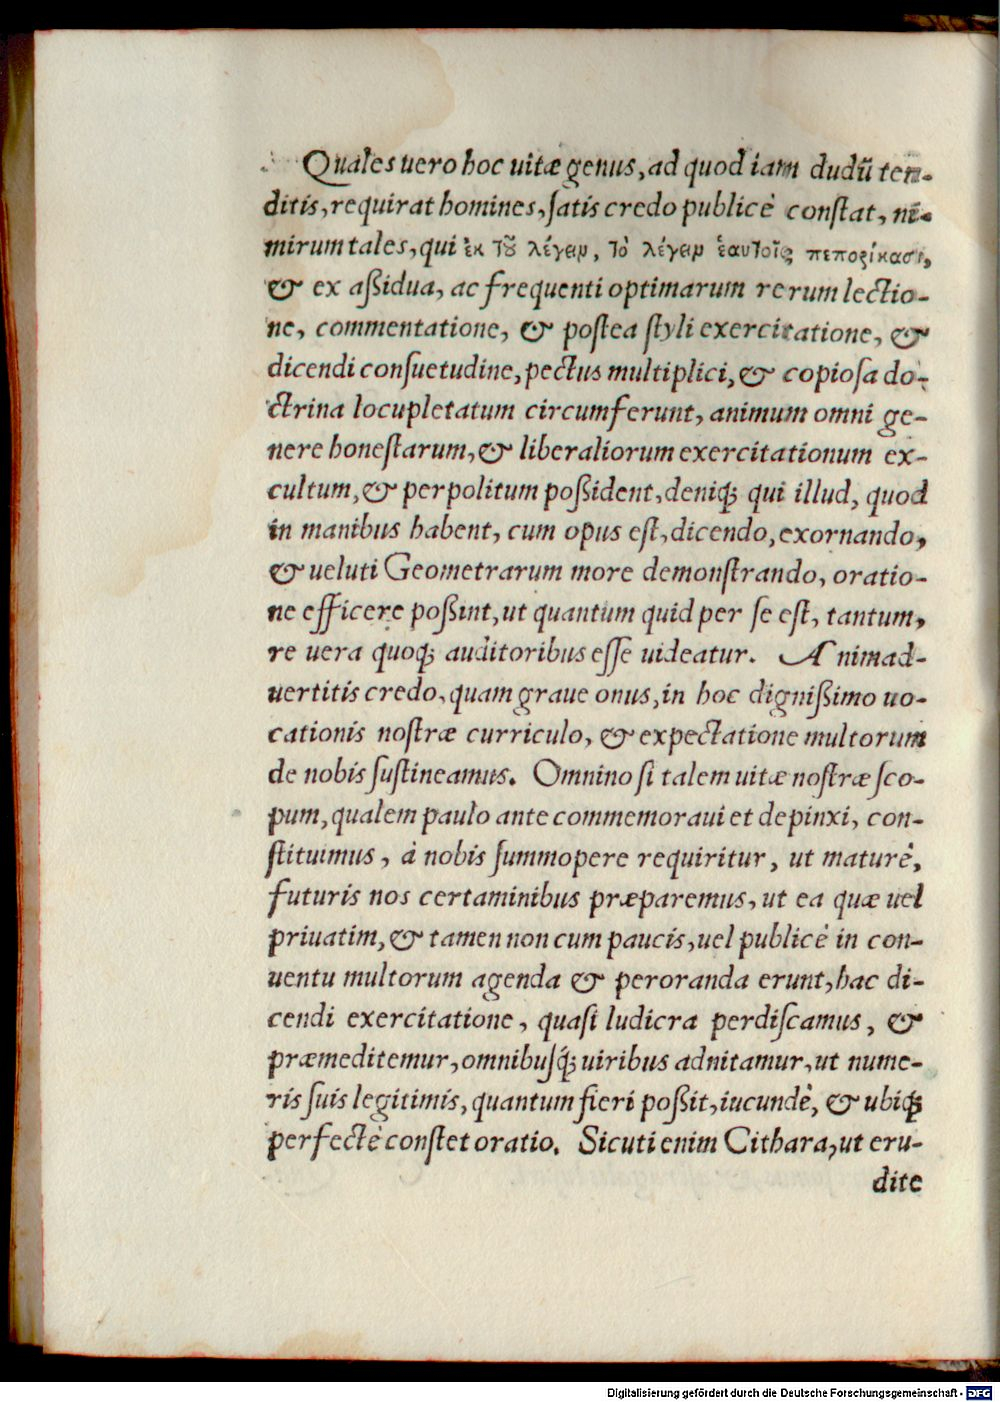 Quales uero hoc uitæ genus, ad quod iam dudũ ten-
ditis, requirat homines, ſatis credo publicè conſtat, ni-
mirum tales, qui ἐκ τοῦ λέγειν, τὸ λέγειν ἑαυτοῖς πεπορίκασι,
& ex aßidua, ac frequenti optimarum rerum lectio-
ne, commentatione, & poſtea ſtyli exercitatione, &
dicendi conſuetudine, pectus multiplici, & copioſa do-
ctrina locupletatum circumferunt, animum omni ge-
nere honeſtarum, & liberaliorum exercitationum ex-
cultum, & perpolitum poßident, deniq; qui illud, quod
in manibus habent, cum opus eſt, dicendo, exornando,
& ueluti Geometrarum more demonſtrando, oratio-
ne efficere poßint, ut quantum quid per ſe eſt, tantum,
re uera quoq; auditoribus eſſe uideatur. Animad-
uertitis credo, quam graue onus, in hoc dignißimo uo-
cationis noſtræ curriculo, & expectatione multorum
de nobis ſuſtineamus. Omnino ſi talem uitæ noſtræ ſco-
pum, qualem paulo ante commemoraui et depinxi, con-
ſtituimus, à nobis ſummopere requiritur, ut maturè,
futuris nos certaminibus præparemus, ut ea quæ uel
priuatim, & tamen non cum paucis, uel publicè in con-
uentu multorum agenda & peroranda erunt, hac di-
cendi exercitatione, quaſi ludicra perdiſcamus, &
præmeditemur, omnibuſq́; uiribus adnitamur, ut nume-
ris ſuis legitimis, quantum fieri poßit, iucundè, & ubiq;
perfectè conſtet oratio. Sicuti enim Cithara, ut eru-
dite
Digitalisierung gefördert durch die Deutsche Forschungsgemeinschaft - DFG